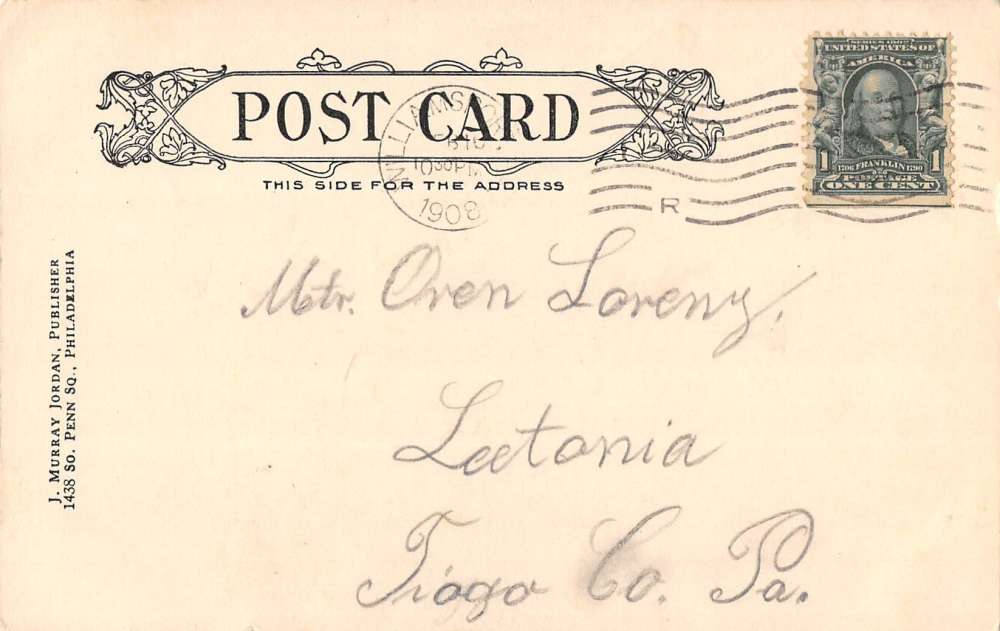 POST CARD
THIS SIDE FOR THE ADDRESS
WILLIAMSPORT
1030PM
1908
R
SERIES 1902
UNITED STATES OF
AMERICA
1 1706 FRANKLIN 1790 1
POSTAGE
ONE CENT
J. MURRAY JORDAN, PUBLISHER
1438 SO. PENN SQ., PHILADELPHIA
Mstr. Oren Lorenz.
Leetonia
Tioga Co. Pa.